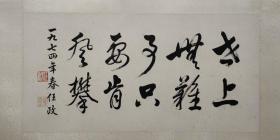 世上
無難
事只
要肯
登攀
一九七四年春任政